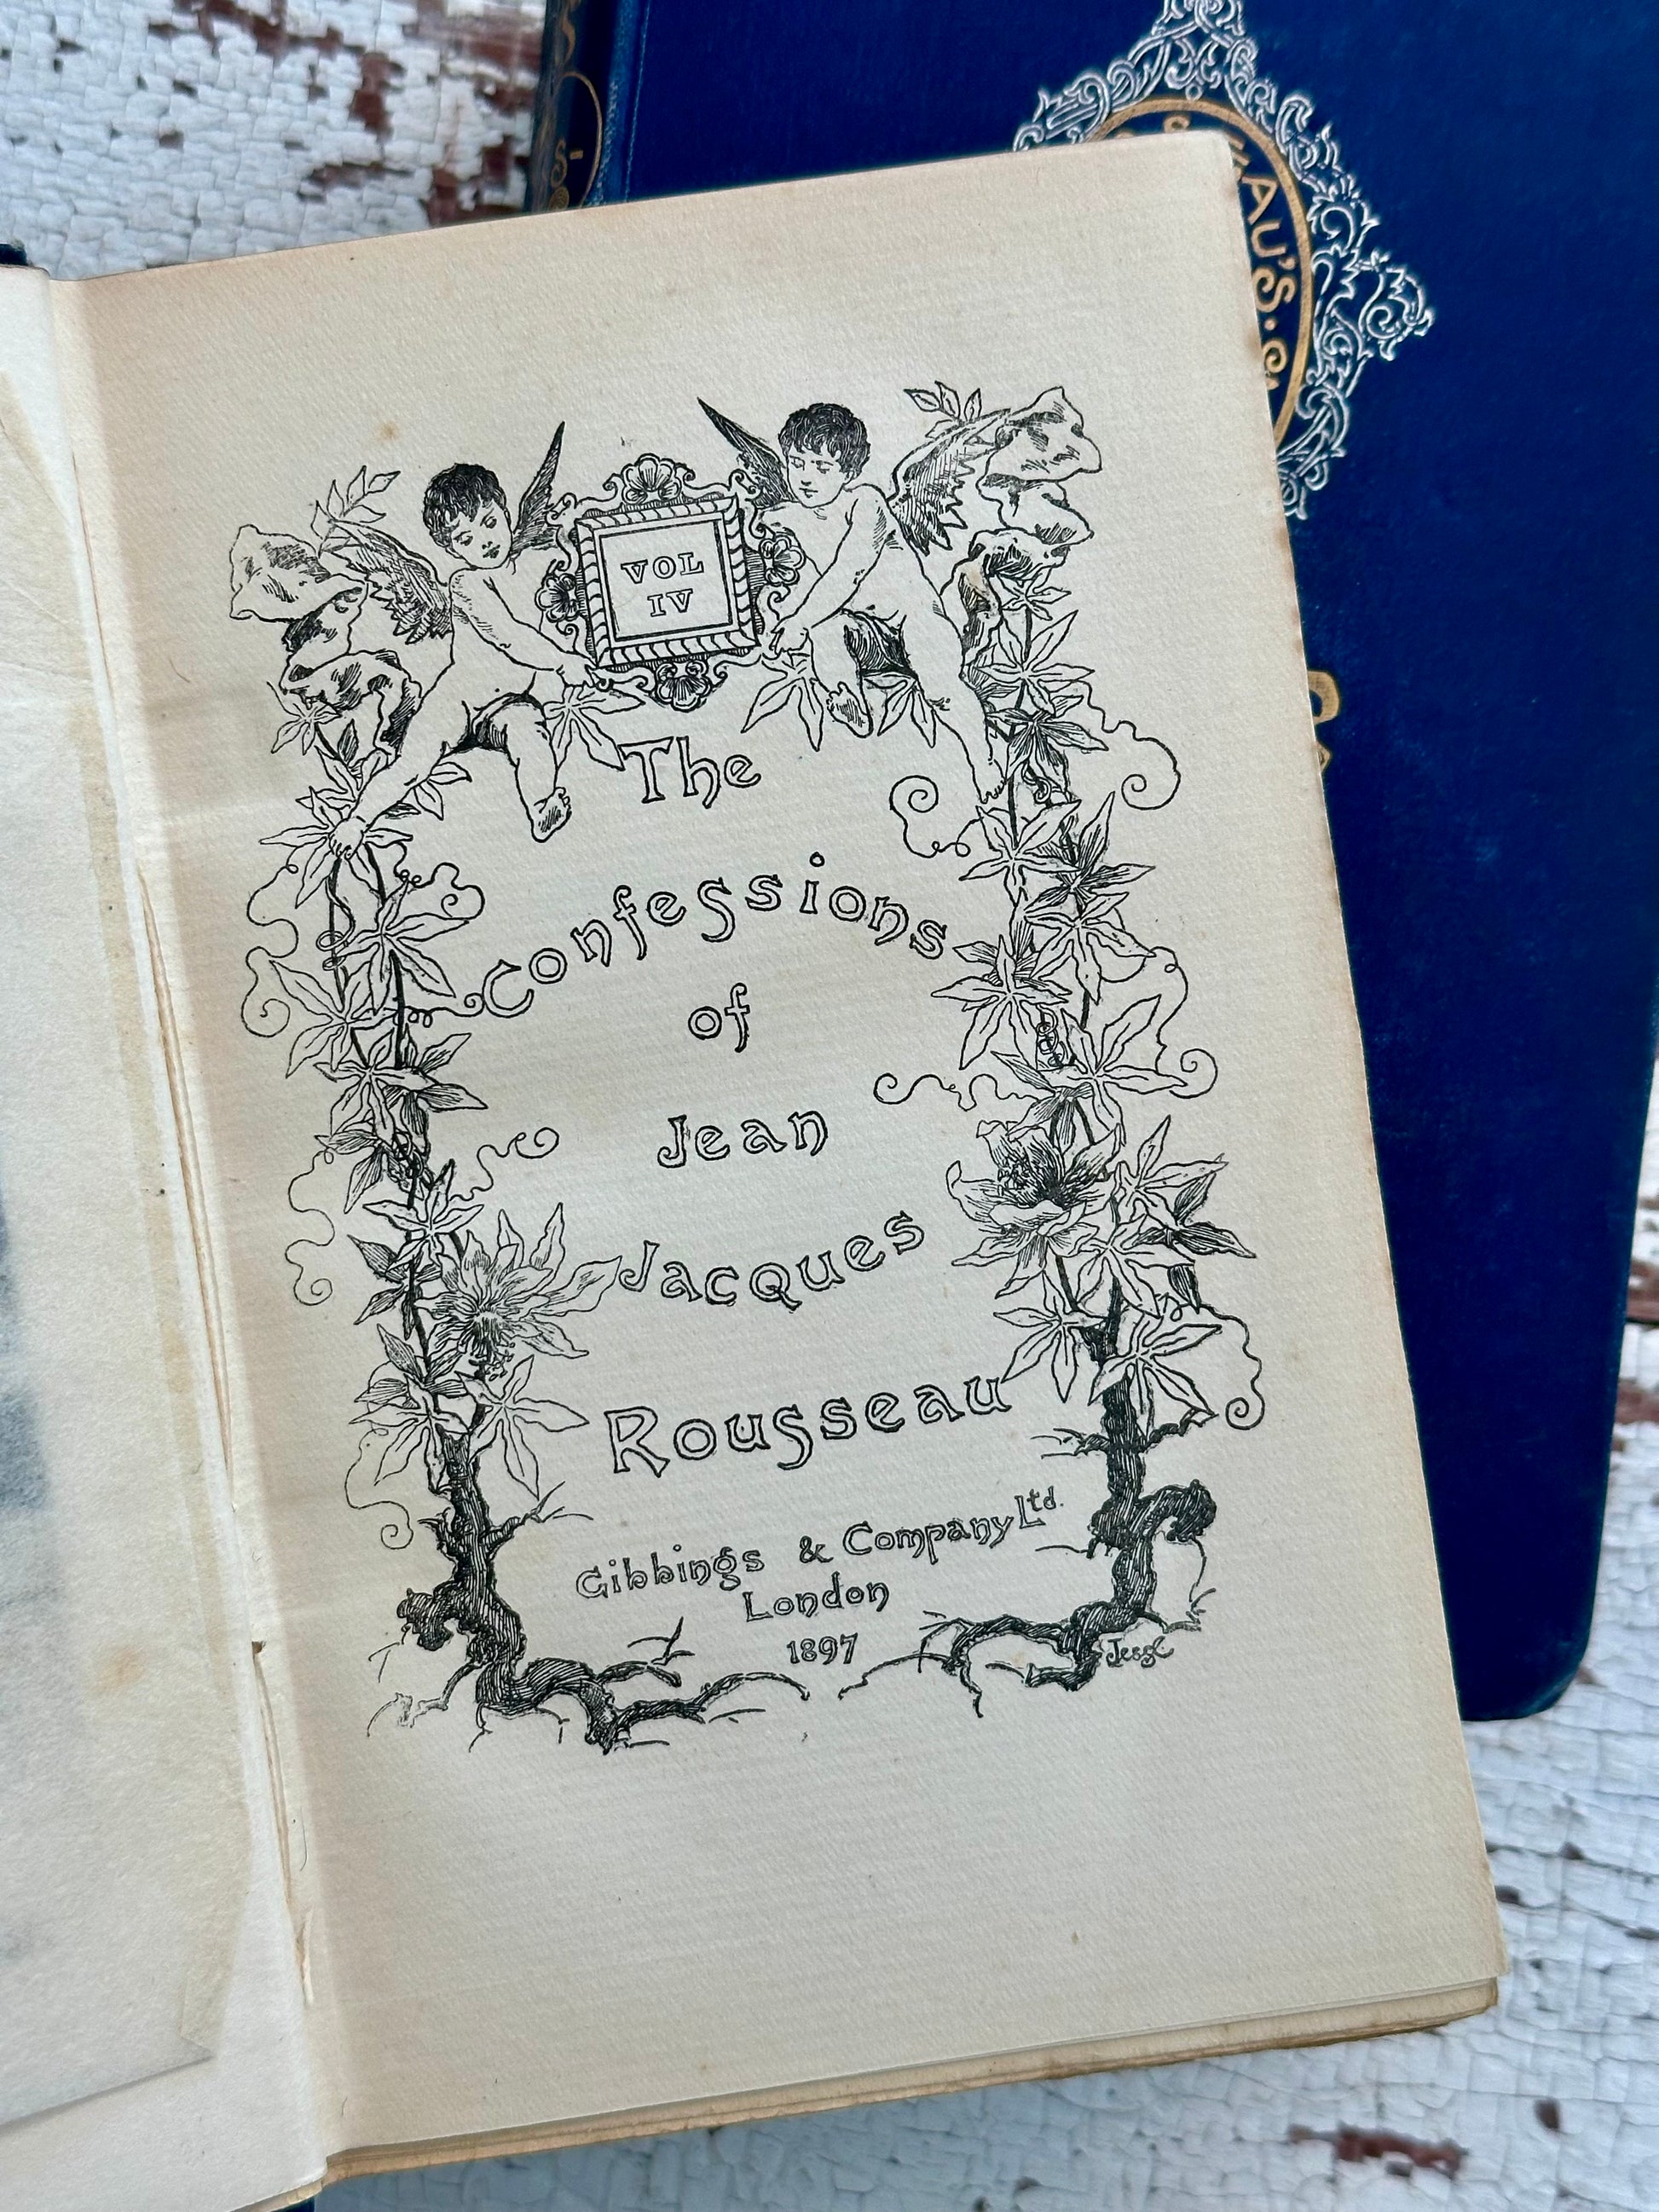 VOL
IV
The
Confessions
of
Jean
Jacques
Rousseau
Gibbings & Company Ltd.
London
1897
AU'S